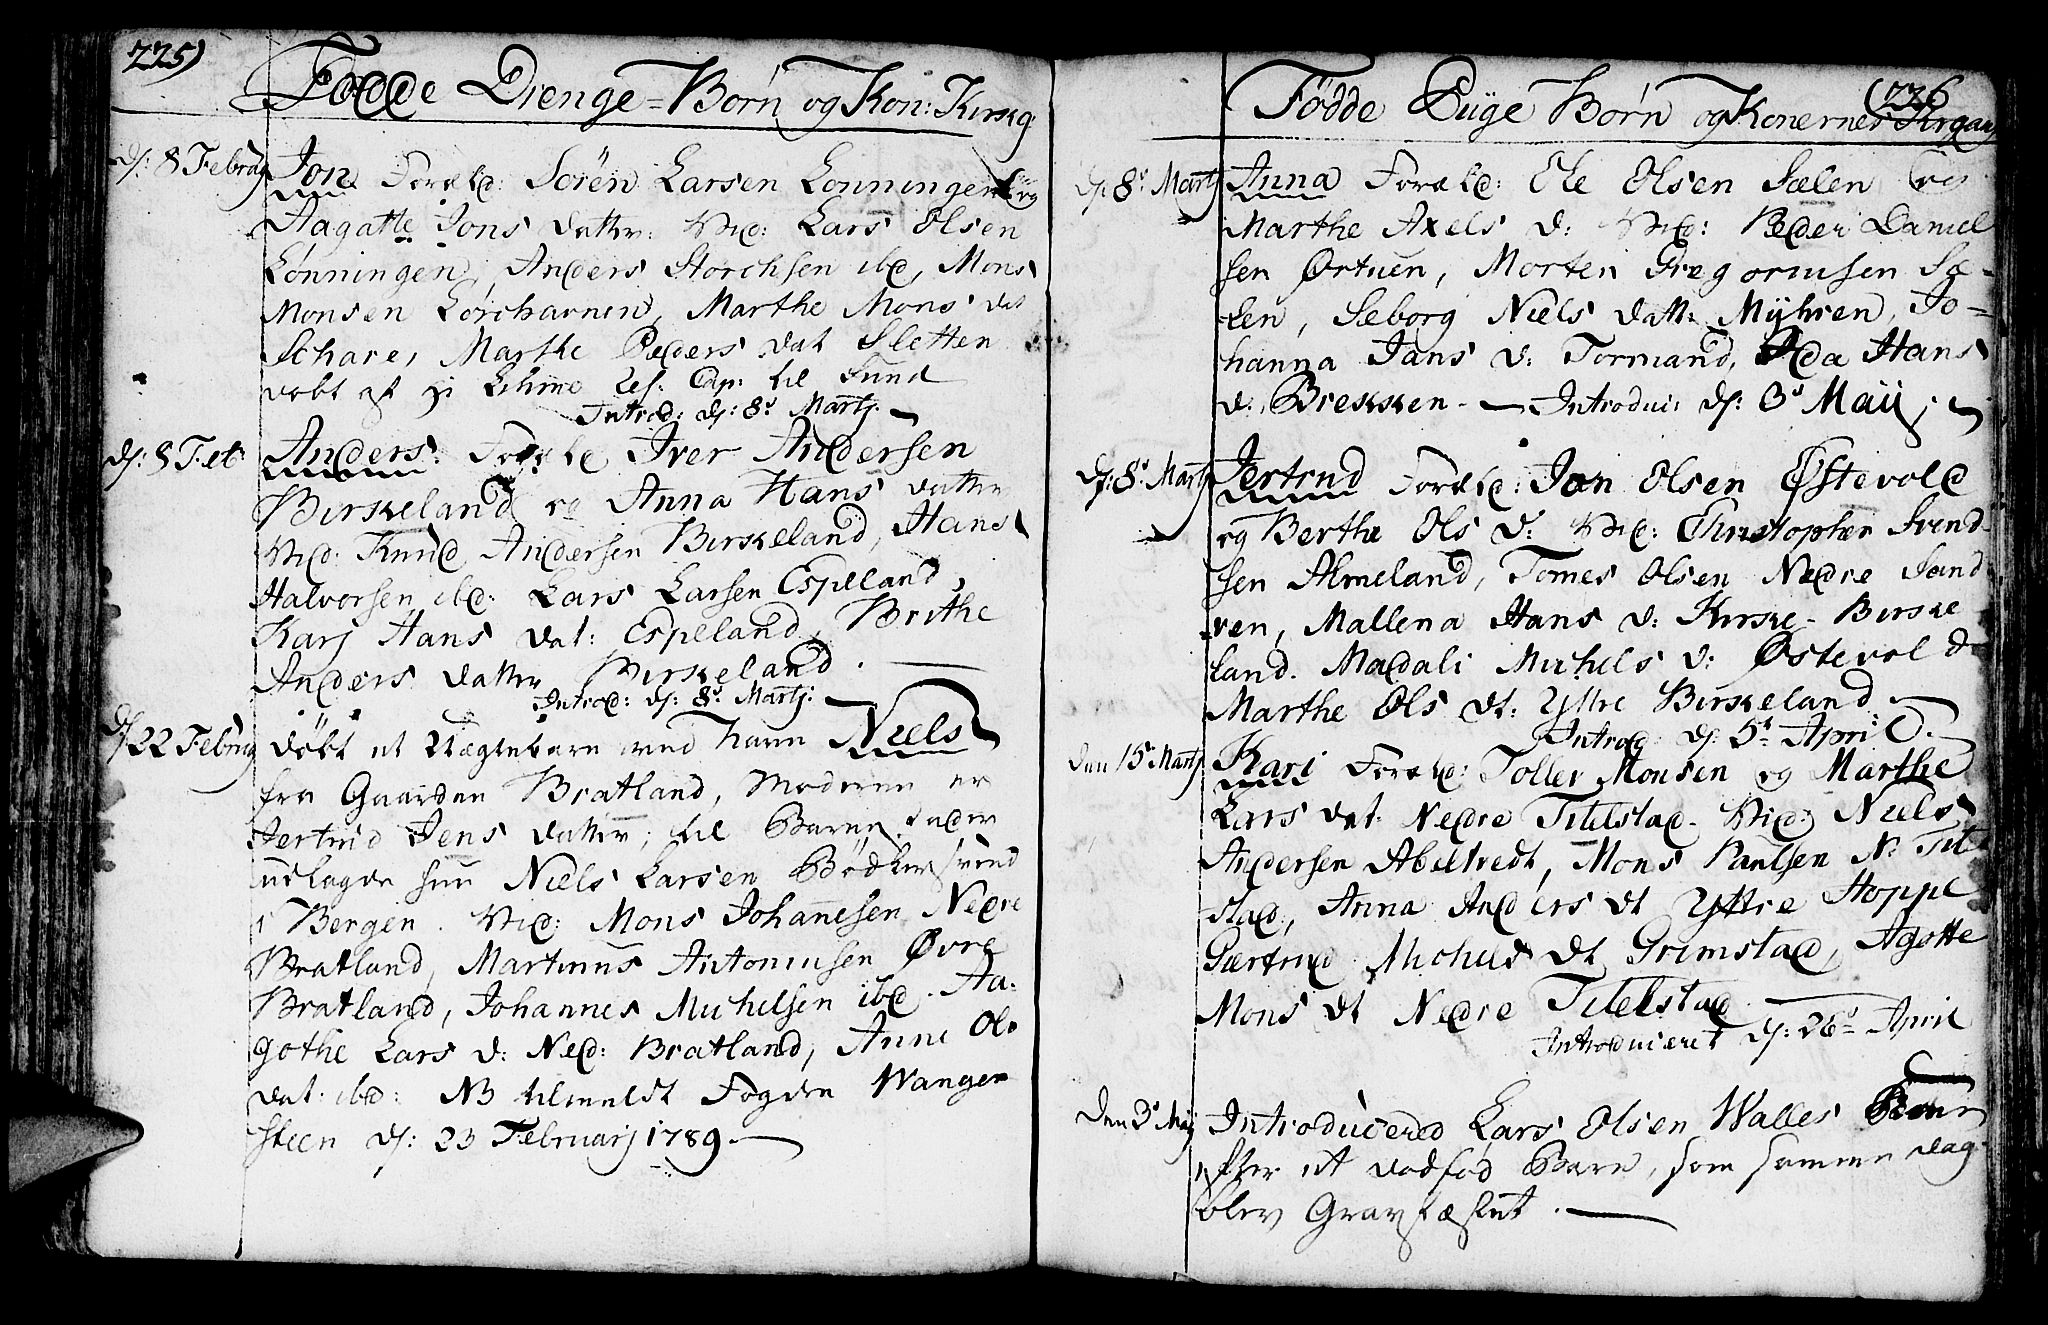 225)
Fødde Drenge-Børn og Kon: Kirkg
d: 8 Februarj Jon Foræld: Sören Larsen Lønningen og
Aagatte Jons datter: Vid: Lars Olsen
Lønningen, Anders Storchsen ibd, Mons
Monsen Lørchavnen, Marthe Mons dat
Schare, Marthe Peders dat Sletten
døbt af Hr Lehme Res: Cap: til Fund
Introd: d: 8de Martj.
d: 8 Feb Anders: Foræld Iver Andersen
Birkeland og Anna Hans datter
Vid: Knud Andersen Birkeland, Hans
Halvorsen ibd: Lars Larsen Espeland,
Karj Hans dat: Espeland, Brithe
Anders datter Birkeland.
Introd: d: 8de Martj.
d: 22 Februarj døbt et Uægte barn ved Navn Niels
fra Gaarden Bratland, Moderen er
Jertrud Jens datter, til Barne fader
udlagde hun Niels Larsen Bødker svend
i Bergen. Vid: Mons Johannesen Nedre
Bratland, Martinus Antoniusen Øvre
Bratland, Johannes Michelsen ibd. Aa-
gothe Lars d: Ned: Bratland, Anne Ols
dat. ibd: NB tilmeldt Fogden Wangen
steen d: 23 Februarj 1789.
(226
Fødde Piige Børn og Konernes Kirgang
d: 8de Martj Anna Foræld: Ole Olsen Sælen og
Marthe Axels d: Vid: Peder Daniel
sen Ørtuen, Morten Gregoriusen Sæ-
len, Seborg Niels datt: Myhren, Jo-
hanna Jans d: Tormand, Oda Hans
d: Brekken - Introdui: d: 3de Maij.
d: 8de Martj Jertrud Foræld: Jon Olsen Østevold
og Berthe Ols d: Vid: Christopher Svend
sen Almeland, Tomes Olsen Nedre Sand
ven, Mallena Hans d: Kirke-Birke
land. Madali Michels d: Østevold
Marthe Ols dt: Yttre Birkeland
Introd: d: 5te April.
Den 15de Martj Kari Foræld: Toller Monsen og Marthe
Lars dat: Nedre Titelstad. Vid: Niels
Andersen Abeltvedt, Mons Paulsen N: Titel
stad, Anna Anders dt Yttre Hoppe
Gærtrud Michels dt Grimstad, Agotte
Mons dt Nedre Titelstad
Introduceret d: 26de April
Den 3de Maij Introducered Lars Olsen Walles Kone
efter et dødfød Barn, som samme dag
blev Gravfæstet.